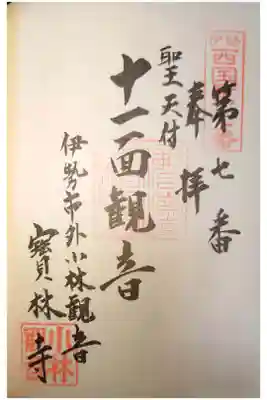 第七番
奉拝
聖天付
十一面観音
伊勢市外小林観音
寳林寺
小林